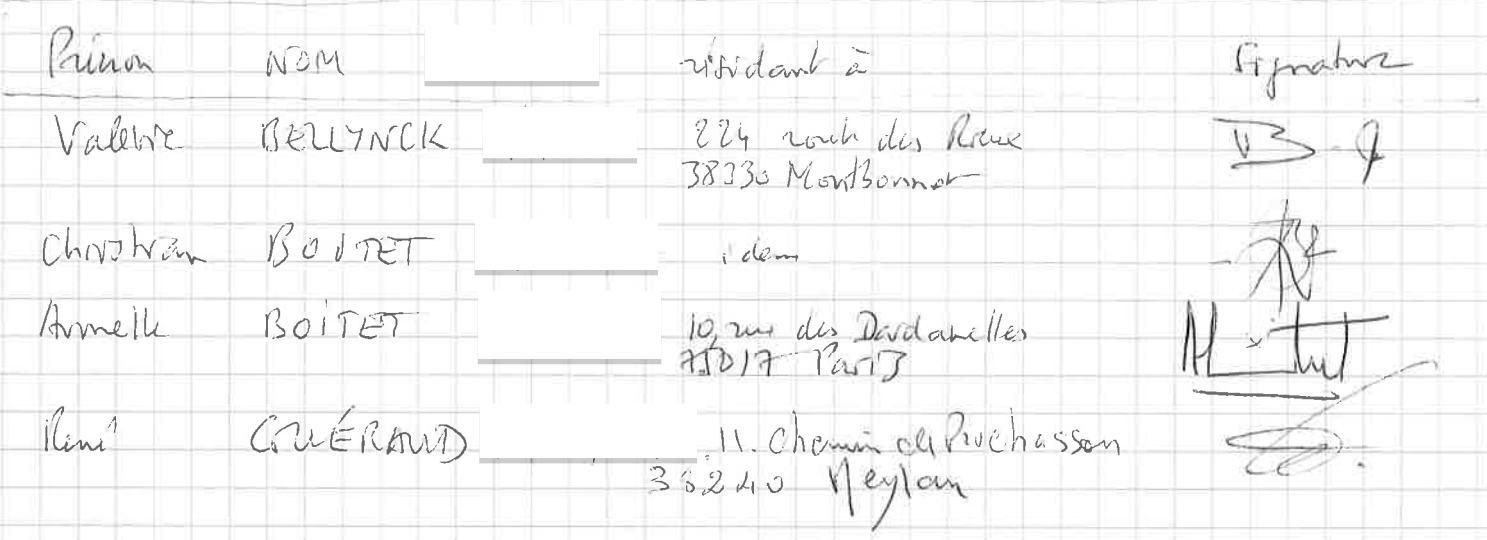 Prénom NOM résidant à Signature
Valérie BELLYNCK 224 route des
38330 Montbonnot
Christian BOITET idem
Armelle BOITET 10, rue des Dardanelles
75017 Paris
René GUÉRAUD 11. Chemin de
38240 Meylan